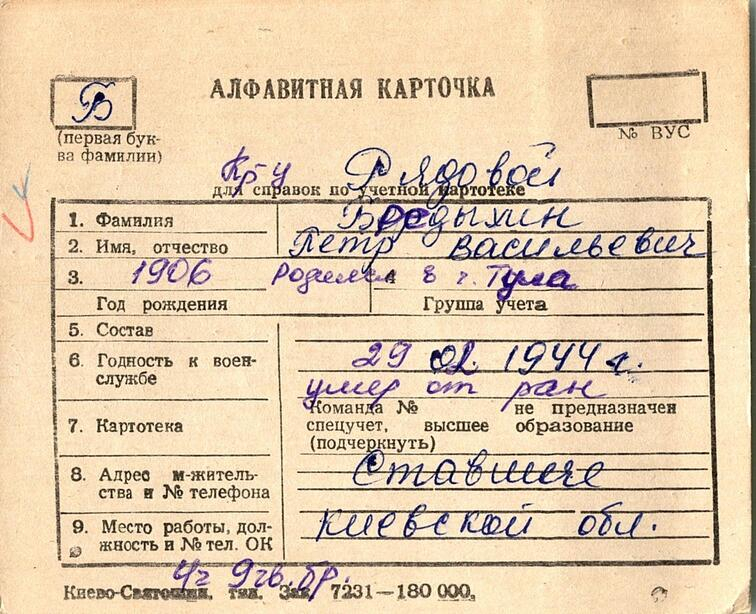 АЛФАВИТНАЯ КАРТОЧКА
Б
(первая бук-
ва фамилии)
№ ВУС
Кр-у Рядовой
для справок по учетной картотеке
1. Фамилия
2. Имя, отчество Петр Васильевич
3. 1906 Родился в г. Тула
Год рождения Группа учета
5. Состав
6. Годность к воен-
службе
29 02. 1944 г.
умер от ран
7. Картотека
Команда № не предназначен
спецучет, высшее образование
(подчеркнуть)
8. Адрес м-житель-
ства и № телефона
Ставище
9. Место работы, дол-
жность и № тел. ОК
Киевской обл.
4ч 9гв. бр.
Киево-Святошин. тип. Зак 7231—180 000.